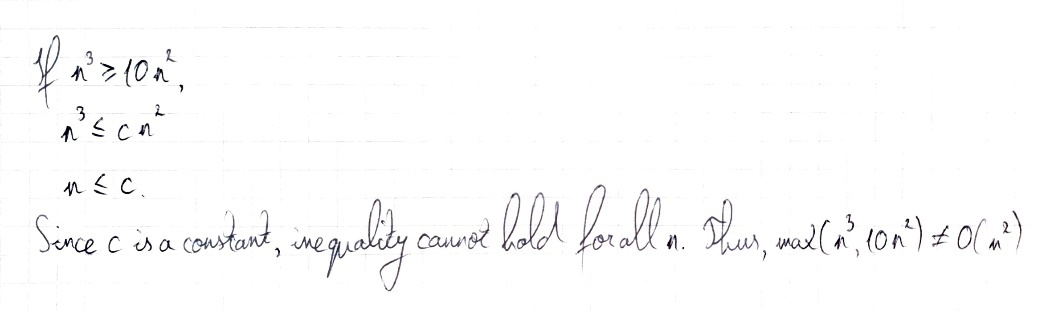 If n³ ≥ 10n²,
n³ ≤ c n²
n ≤ c.
Since c is a constant, inequality cannot hold for all n. Thus, max(n³, 10n²) ≠ O(n²)